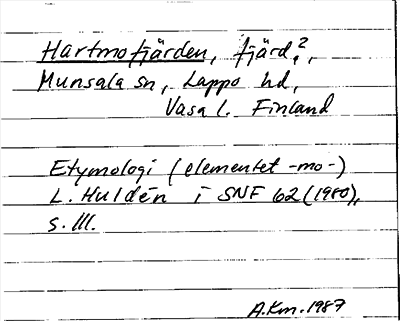 Hartmofjärden, fjärd?,
Munsala sn, Lappo hd,
Vasa l. Finland
Etymologi (elementet -mo-)
L. Huldén i SNF 62 (1980),
s. 111.
A.Km. 1987